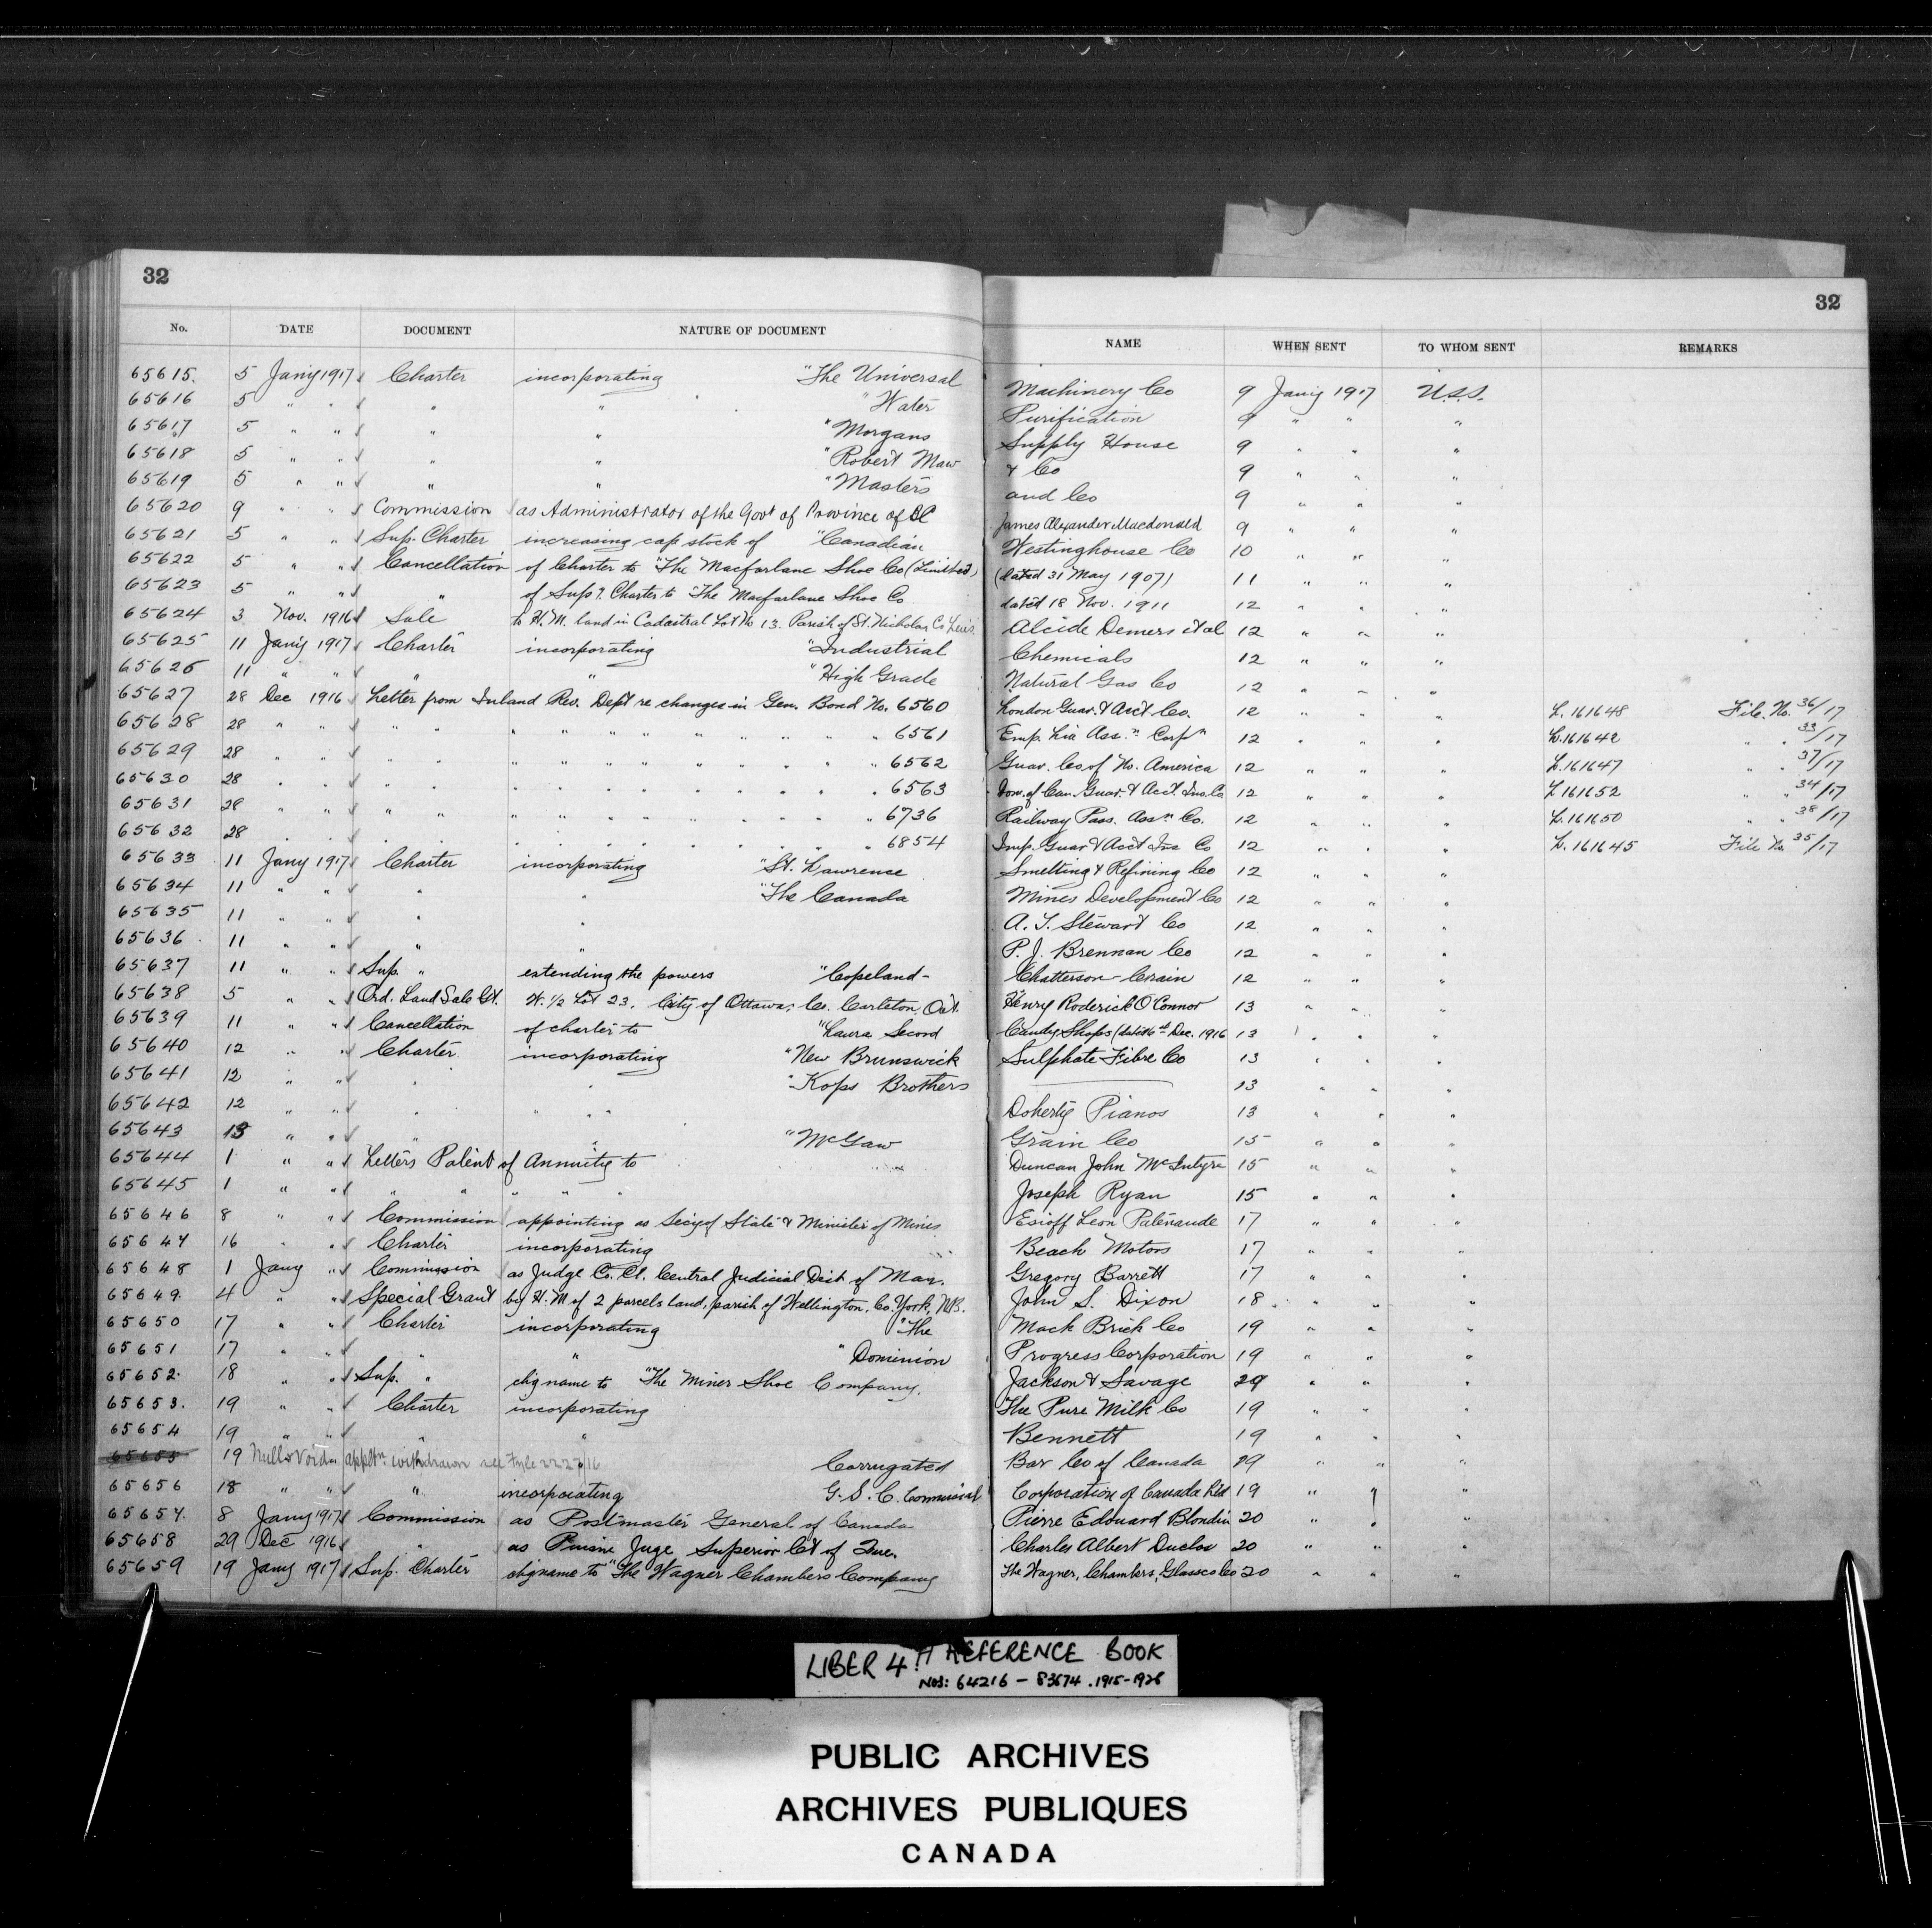 32
No. DATE DOCUMENT NATURE OF DOCUMENT
32
NAME WHEN SENT TO WHOM SENT REMARKS
65615. 5 Jan'y 1917 Charter incorporating "The Universal Machinery Co 9 Jan'y 1917 U.S.S.
65616 5 " " " " "Water Purification 9 " " "
65617 5 " " " " "Morgans Supply House 9 " " "
65618 5 " " " " "Robert Maw & Co 9 " " "
65619 5 " " " " "Masters and Co 9 " " "
65620 9 " " Commission as Administrator of the Govt of Province of BC James Alexander Macdonald 9 " " "
65621 5 " " Sup. Charter increasing cap stock of "Canadian Westinghouse Co 10 " " "
65622 5 " " Cancellation of Charter to "The Macfarlane Shoe Co (Limited) (dated 31 May 1907) 11 " " "
65623 5 " " " of Supy. Charter to "The Macfarlane Shoe Co dated 18 Nov. 1911 12 " " "
65624 3 Nov. 1916 Sale to H.M. land in Cadastral Lot No 13. Parish of St. Nicholas Co Levis Alcide Demers et al 12 " " "
65625 11 Jan'y 1917 Charter incorporating "Industrial Chemicals 12 " " "
65626 11 " " " " "High Grade Natural Gas Co 12 " " "
65627 28 Dec 1916 Letter from Inland Rev. Dept re changes in Gen. Bond No. 6560 London Guar. & Acct Co. 12 " " " L. 161648 File No. 36/17
65628 28 " " " " " " " " " " " " 6561 Emp. Lia Ass.n Corpn 12 " " " L. 161642 " " 33/17
65629 28 " " " " " " " " " " " " 6562 Guar. Co of No. America 12 " " " L. 161647 " " 37/17
65630 28 " " " " " " " " " " " " 6563 Dom. of Can. Guar. & Acct. Ins. Co 12 " " " L 161652 " " 34/17
65631 28 " " " " " " " " " " " " 6736 Railway Pass. Assn Co. 12 " " " L. 161650 " " 38/17
65632 28 " " " " " " " " " " " " 6854 Imp. Guar & Acct Ins Co 12 " " " L. 161645 File No 35/17
65633 11 Jany 1917 Charter incorporating "St. Lawrence Smelting & Refining Co 12 " " "
65634 11 " " " " "The Canada Mines Development Co 12 " " "
65635 11 " " " " A. T. Stewart Co 12 " " "
65636 11 " " " " P. J. Brennan Co 12 " " "
65637 11 " " Sup. " extending the powers "Copeland- Chatterson-Crain 12 " " "
65638 5 " " Ord. Land Sale Ct. W. 1/2 Lot 23, City of Ottawa, Co. Carleton, Ont. Henry Roderick O'Connor 13 " " "
65639 11 " " Cancellation of charter to "Laura Secord Candy Shops (dated 6th Dec. 1916 13 " " "
65640 12 " " Charter incorporating "New Brunswick Sulphate Fibre Co 13 " " "
65641 12 " " " " "Kops Brothers 13 " " "
65642 12 " " " " " Doherty Pianos 13 " " "
65643 13 " " " " "McGaw Grain Co 15 " " "
65644 1 " " Letters Patent of Annuity to Duncan John McIntyre 15 " " "
65645 1 " " " " " " " Joseph Ryan 15 " " "
65646 8 " " Commission appointing as Secy of State & Minister of Mines Esioff Leon Patenaude 17 " " "
65647 16 " " Charter incorporating Beach Motors 17 " " "
65648 1 Jany " Commission as Judge Co. Ct. Central Judicial Dist of Man. Gregory Barrett 17 " " "
65649. 4 " " Special Grant by H.M of 2 parcels land, parish of Wellington, Co. York, N.B. John S. Dixon 18 " " "
65650 17 " " Charter incorporating "The Mack Brick Co 19 " " "
65651 17 " " " " "Dominion Progress Corporation 19 " " "
65652. 18 " " Sup. " chg name to "The Miner Shoe Company. Jackson & Savage 29 " " "
65653. 19 " " Charter incorporating The Pure Milk Co 19 " " "
65654 19 " " " " Bennett 19 " " "
65655 19 Null & Void appltn withdrawn see Fyle 2227/16 Corrugated Bar Co of Canada 29 " " "
65656 18 " " " incorporating G. S. C. Commercial Corporation of Canada Ltd 19 " " "
65657. 8 Jany 1917 Commission as Postmaster General of Canada Pierre Edouard Blondin 20 " " "
65658 29 Dec 1916 " as Puisne Juge Superior Ct of Que. Charles Albert Duclos 20 " " "
65659 19 Jany 1917 Sup. Charter chg name to "The Wagner Chambers Company The Wagner, Chambers, Glassco Co 20 " " "
LIBER 4 REFERENCE BOOK
NOS: 64216 - 83674 . 1915-1928
PUBLIC ARCHIVES
ARCHIVES PUBLIQUES
CANADA